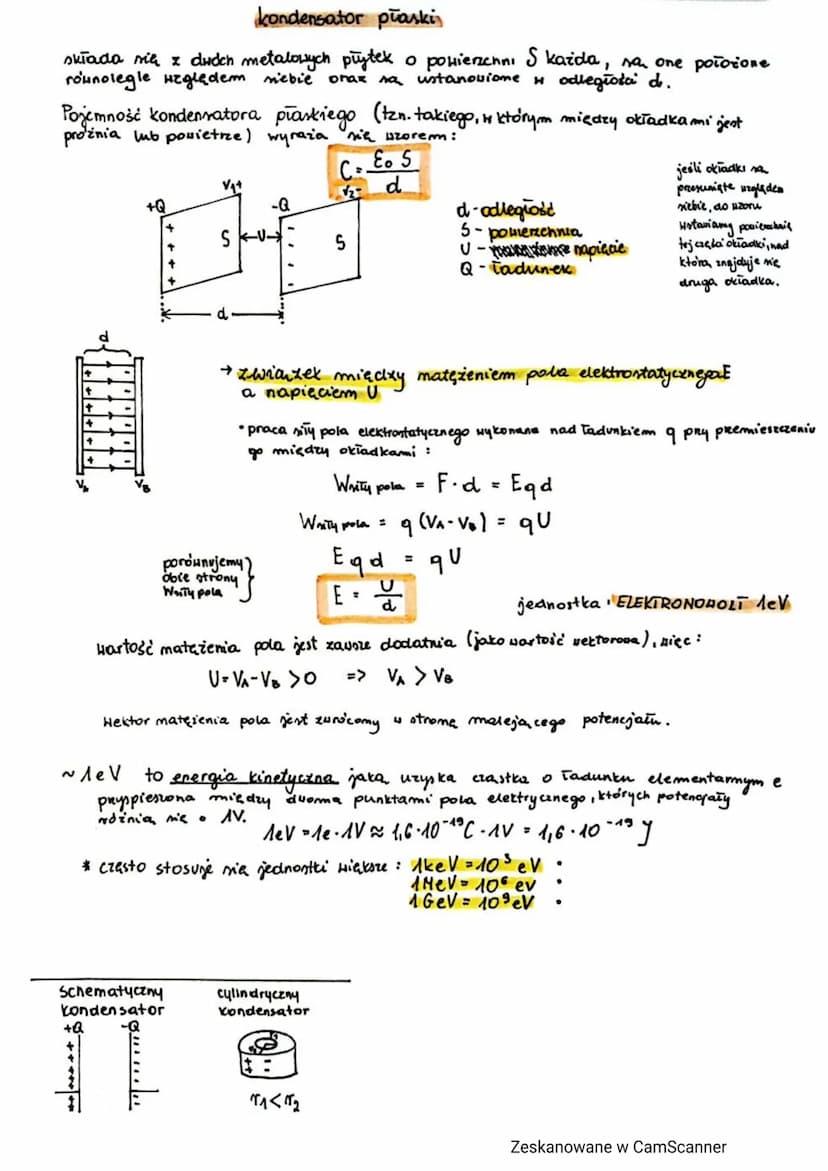 kondensator płaski
składa się z dwóch metalowych płytek o powierzchni S każda, są one położone
równolegle względem siebie oraz są ustanowione w odległości d.
Pojemność kondensatora płaskiego (tzn. takiego, w którym między okładkami jest
próżnia lub powietrze) wyraża się wzorem:
C = ε₀ S / d
jeśli okładki są
przesunięte względem
siebie, do wzoru
wstawiamy powierzchnię
tej części okładki, nad
którą znajduje się
druga okładka.
+Q
V₁+
-Q
V₂-
+
+
+
+
S
U
-
-
-
-
S
d
d - odległość
S - powierzchnia
U - napięcie
Q - ładunek
d
+ -
+ -
+ -
+ -
+ -
+ -
VA VB
→ związek między natężeniem pola elektrostatycznego E
a napięciem U
• praca siły pola elektrostatycznego wykonana nad ładunkiem q przy przemieszczeniu
go między okładkami:
Wsiły pola = F · d = Eqd
Wsiły pola = q (VA - VB) = qU
Eqd = qU
porównujemy
obie strony
Wsiły pola
E = U / d
jednostka: ELEKTRONOWOLT 1eV
wartość natężenia pola jest zawsze dodatnia (jako wartość wektorowa), więc:
U = VA - VB > 0 => VA > VB
Wektor natężenia pola jest zwrócony w stronę malejącego potencjału.
~ 1eV to energia kinetyczna jaką uzyska cząstka o ładunku elementarnym e
przyspieszona między dwoma punktami pola elektrycznego, których potencjały
różnią się o 1V.
1eV = 1e · 1V ≈ 1,6 · 10⁻¹⁹ C · 1V = 1,6 · 10⁻¹⁹ J
* często stosuje się jednostki większe: 1keV = 10³ eV •
1MeV = 10⁶ eV •
1GeV = 10⁹ eV •
schematyczny
kondensator
+Q -Q
cylindryczny
kondensator
+ -
+ -
r₁ < r₂
Zeskanowane w CamScanner